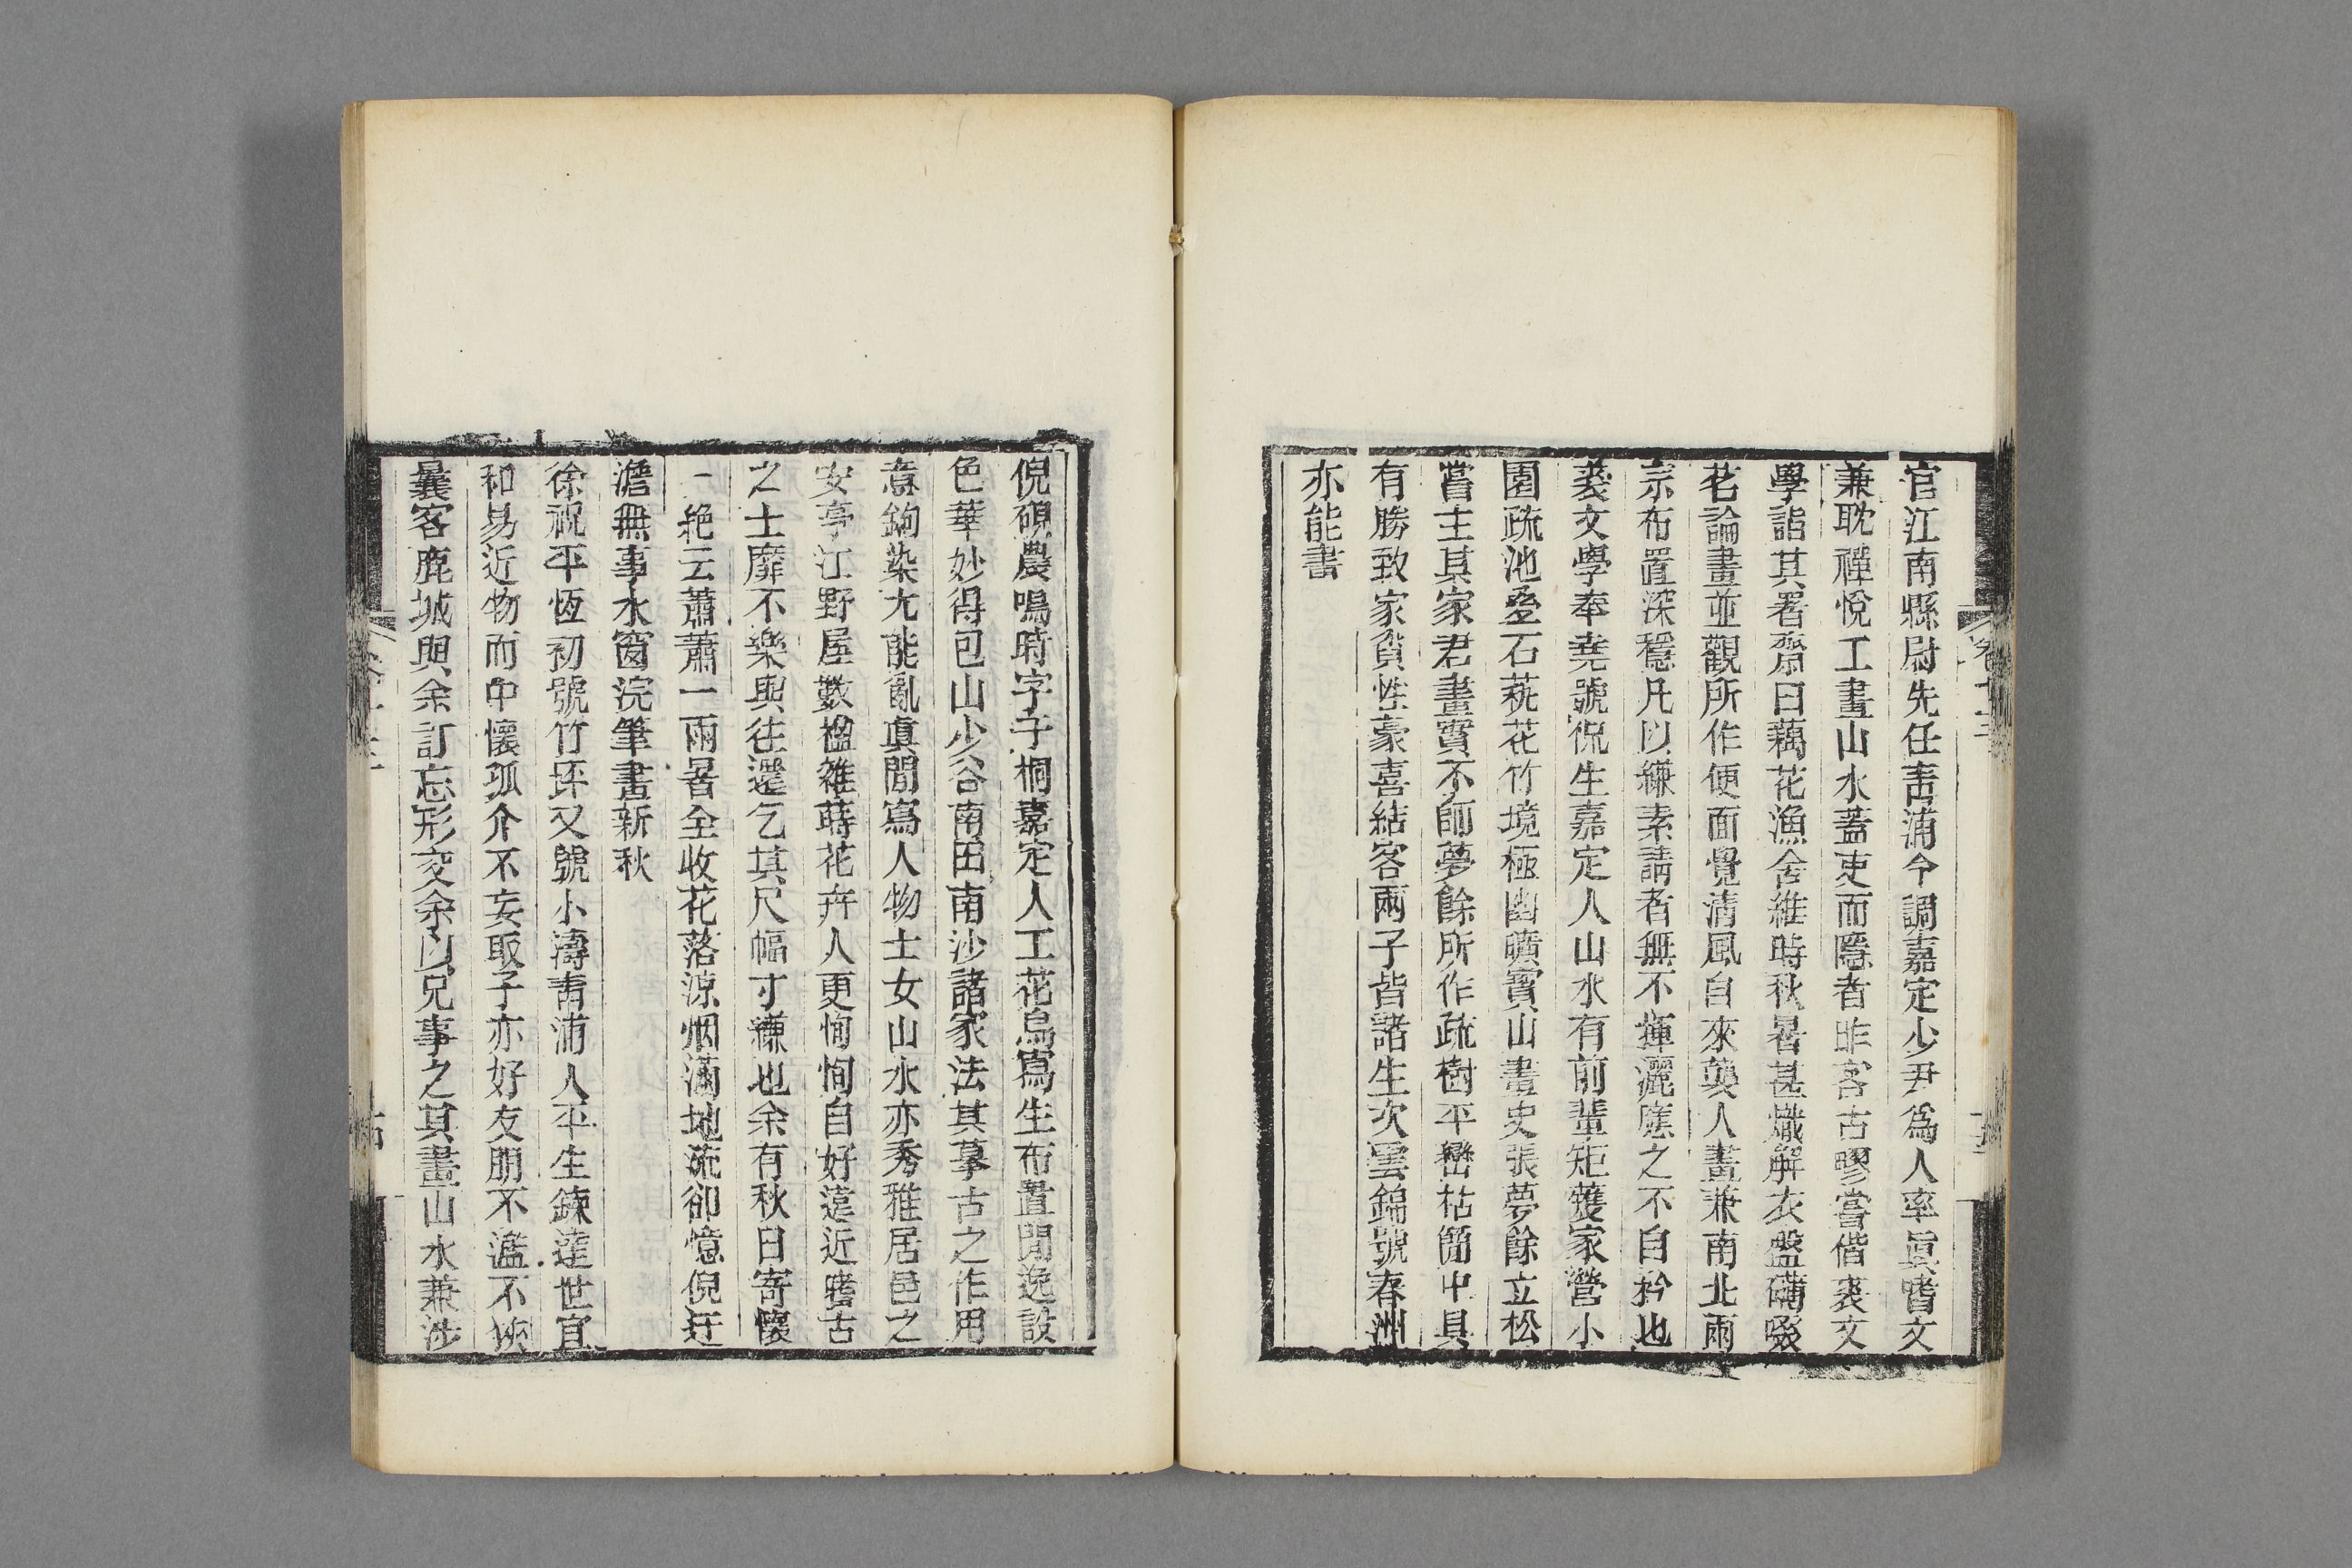 官江南縣尉先任靑浦今調嘉定少尹爲人率眞嗜文
兼耽禪悅工畫山水蓋吏而隱者昨客古疁嘗偕裘文
學詣其署齋曰藕花漁舍維時秋暑甚熾解衣盤礴啜
茗論畫並觀所作便面覺淸風自來襲人畫兼南北兩
宗布置深穩凡以縑素請者無不揮灑應之不自矜也
裘文學奉堯號倪生嘉定人山水有前輩矩矱家營小
園疏池疊石蒔花竹境極幽曠寶山畫史張夢餘立松
嘗主其家君畫實不師夢餘所作疏樹平巒枯簡中具
有勝致家貧性豪喜結客兩子皆諸生次雲錦號春洲
亦能畫
倪硯農鳴時字子桐嘉定人工花鳥寫生布置閒逸設
色華妙得包山少谷南田南沙諸家法其摹古之作用
意鉤染尤能亂眞間寫人物士女山水亦秀雅居邑之
安亭江野屋數楹雜蒔花卉人更恂恂自好遠近嗜古
之士靡不樂與往還乞其尺幅寸縑也余有秋日寄懷
一絶云蕭蕭一雨暑全收花落涼烟滿地流卻憶倪迂
澹無事水窗浣筆畫新秋
徐祝平恆初號竹坪又號小濤靑浦人平生鍊達世宜
和易近物而中懷孤介不妄取予亦好友朋不濫不狹
曩客鹿城與余訂忘形交余以兄事之其畫山水兼涉